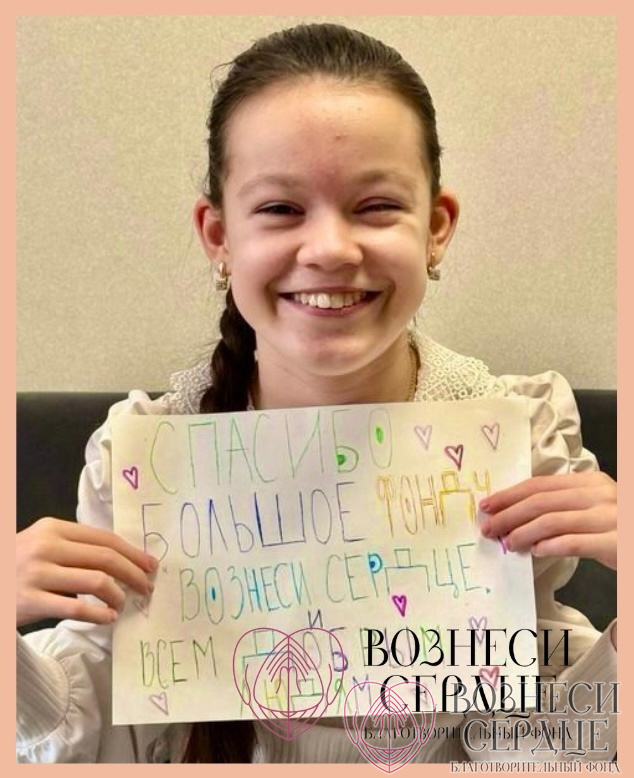 СПАСИБО
БОЛЬШОЕ ФОНДУ
"ВОЗНЕСИ СЕРДЦЕ.
И
ВСЕМ ДОБРЫМ
ЛЮДЯМ
ВОЗНЕСИ
СЕРДЦЕ
БЛАГОТВОРИТЕЛЬНЫЙ ФОНД
ВОЗНЕСИ
СЕРДЦЕ
БЛАГОТВОРИТЕЛЬНЫЙ ФОНД